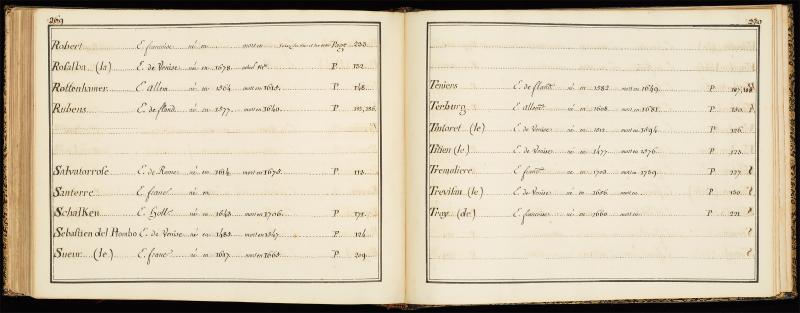 269
Robert E. françoise né en mort en Page 233.
Rosalba (la) E. de Venise né en 1678. P. 132.
Rottenhamer E. allem. né en 1564 mort en P. 148.
Rubens E. de fland. né en 1577. mort en 1640. P.
Salvatorrose E. de Rome né en 1614 mort en 1673. P. 113.
Santerre E. franc. né en
SchalKen E. holl. né en 1643 mort en 1706. P. 171.
Sebastien del Piombo E. de Venise né en 1485. mort en 1547. P. 124.
Sueur (le) E. franc. né en 1617 mort en P. 209.
270
Teniers E. de fland. né en 1582 mort en 1649. P.
Terburg E. allem. né en 1608 mort en 1681. P. 150.
Tintoret (le) E. de Venise né en 1512 mort en 1594 P. 126.
Titien (le) E. de Venise né en 1477 mort en 1576. P. 123.
Tremoliere E. franc. né en 1703 mort en 1739. P. 227.
Trevisan (le) E. de Venise né en 1656 mort en P. 130.
Troy (de) E. francoise né en 1660 mort en P. 221.